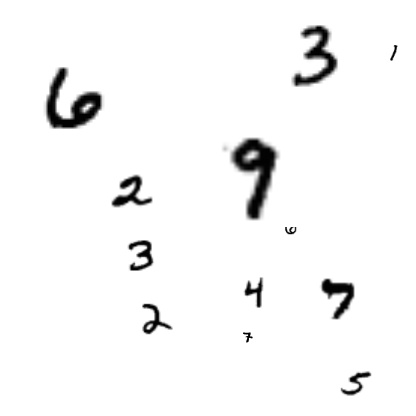 3 1
6
2 9
6
3
4 7
2
7
5